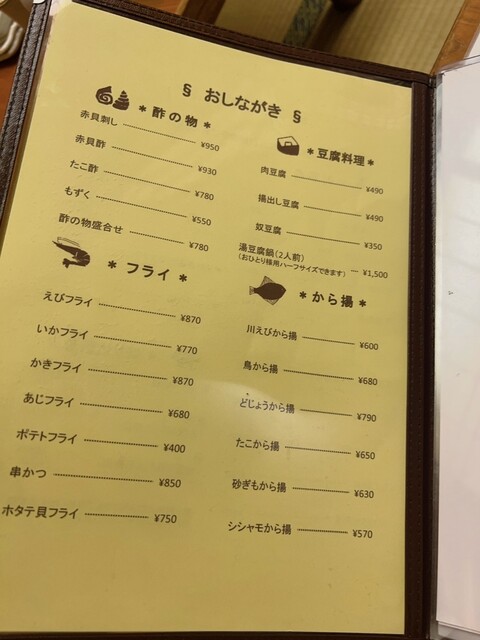 § おしながき §
* 酢の物 *
赤貝刺し ¥950
赤貝酢 ¥930
たこ酢 ¥780
もずく ¥550
酢の物盛合せ ¥780
* フライ *
えびフライ ¥870
いかフライ ¥770
かきフライ ¥870
あじフライ ¥680
ポテトフライ ¥400
串かつ ¥850
ホタテ貝フライ ¥750
* 豆腐料理 *
肉豆腐 ¥490
揚出し豆腐 ¥490
奴豆腐 ¥350
湯豆腐鍋(2人前) ¥1,500
(おひとり様用ハーフサイズできます)
* から揚 *
川えびから揚 ¥600
鳥から揚 ¥680
どじょうから揚 ¥790
たこから揚 ¥650
砂ぎもから揚 ¥630
シシャモから揚 ¥570